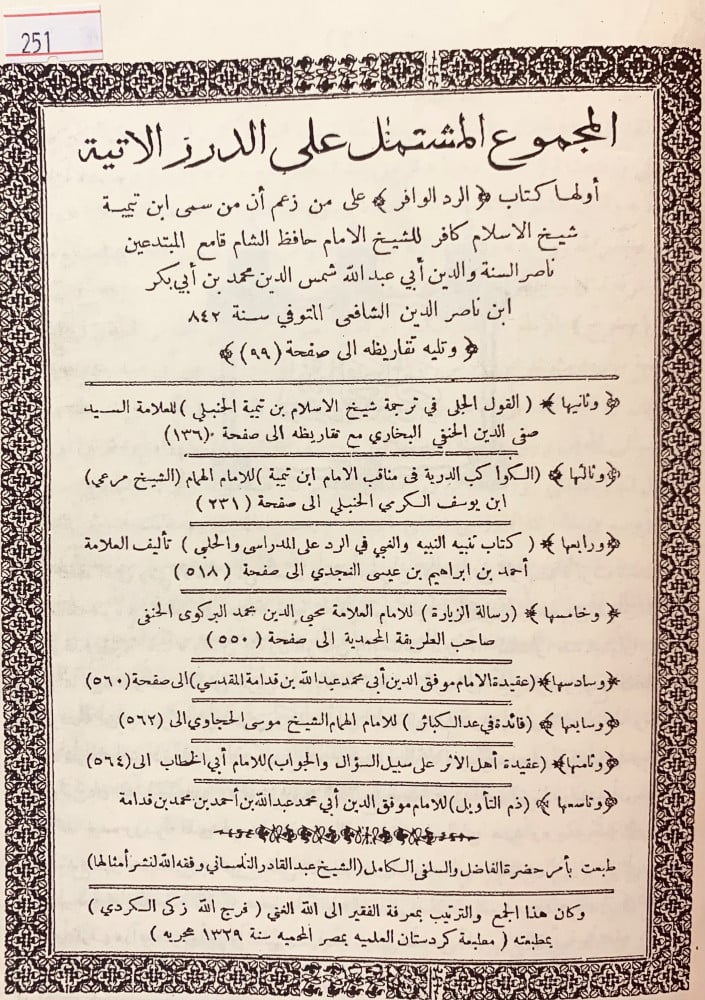 251
المجموع المشتمل على الدرر الاتية
أولها كتاب ﴿ الرد الوافر ﴾ على من زعم أن من سمى ابن تيمية
شيخ الاسلام كافر للشيخ الامام حافظ الشام قامع المبتدعين
ناصر السنة والدين أبي عبد الله شمس الدين محمد بن أبي بكر
ابن ناصر الدين الشافعى المتوفي سنة ٨٤٢
﴿ وتليه تقاريظه الى صفحة (٩٩) ﴾
﴿ وثانيها ﴾ ( القول الجلى في ترجمة شيخ الاسلام بن تيمية الحنبلى ) للعلامة السيد
صفى الدين الحنفي البخاري مع تقاريظه الى صفحة (١٣٦)
﴿ وثالثها ﴾ (الكواكب الدرية فى مناقب الامام ابن تيمية )للامام الهمام (الشيخ مرعي)
ابن يوسف الكرمي الحنبلي الى صفحة ( ٢٣١ )
﴿ ورابعها ﴾ ( كتاب تنبيه النبيه والغبي في الرد على المدراسى والحلبي ) تأليف العلامة
أحمد بن ابراهيم بن عيسى النجدي الى صفحة ( ٥١٨ )
﴿ وخامسها ﴾ (رسالة الزيارة ) للامام العلامة محيى الدين محمد البركوى الحنفى
صاحب الطريقة المحمدية الى صفحة ( ٥٥٠ )
﴿ وسادسها ﴾ (عقيدة الامام موفق الدين أبى محمد عبد الله بن قدامة المقدسي) الى صفحة (٥٦٠)
﴿ وسابعها ﴾ (فائدة في عد الكبائر ) للامام الهمام الشيخ موسى الحجاوي الى (٥٦٢)
﴿ وثامنها ﴾ (عقيدة أهل الاثر على سبيل السؤال والجواب) للامام أبي الخطاب الى (٥٦٤)
﴿ وتاسعها ﴾ (ذم التأويل) للامام موفق الدين أبي محمد عبد الله بن احمد بن محمد بن قدامة
طبعت بأمر حضرة الفاضل والسلفى الكامل (الشيخ عبد القادر التلمساني وفقه الله لنشر أمثالها)
وكان هذا الجمع والترتيب بمعرفة الفقير الى الله الغني ( فرج الله زكى الكردي )
بمطبعته ( مطبعة كردستان العلميه بمصر المحميه سنة ١٣٢٩ هجريه )